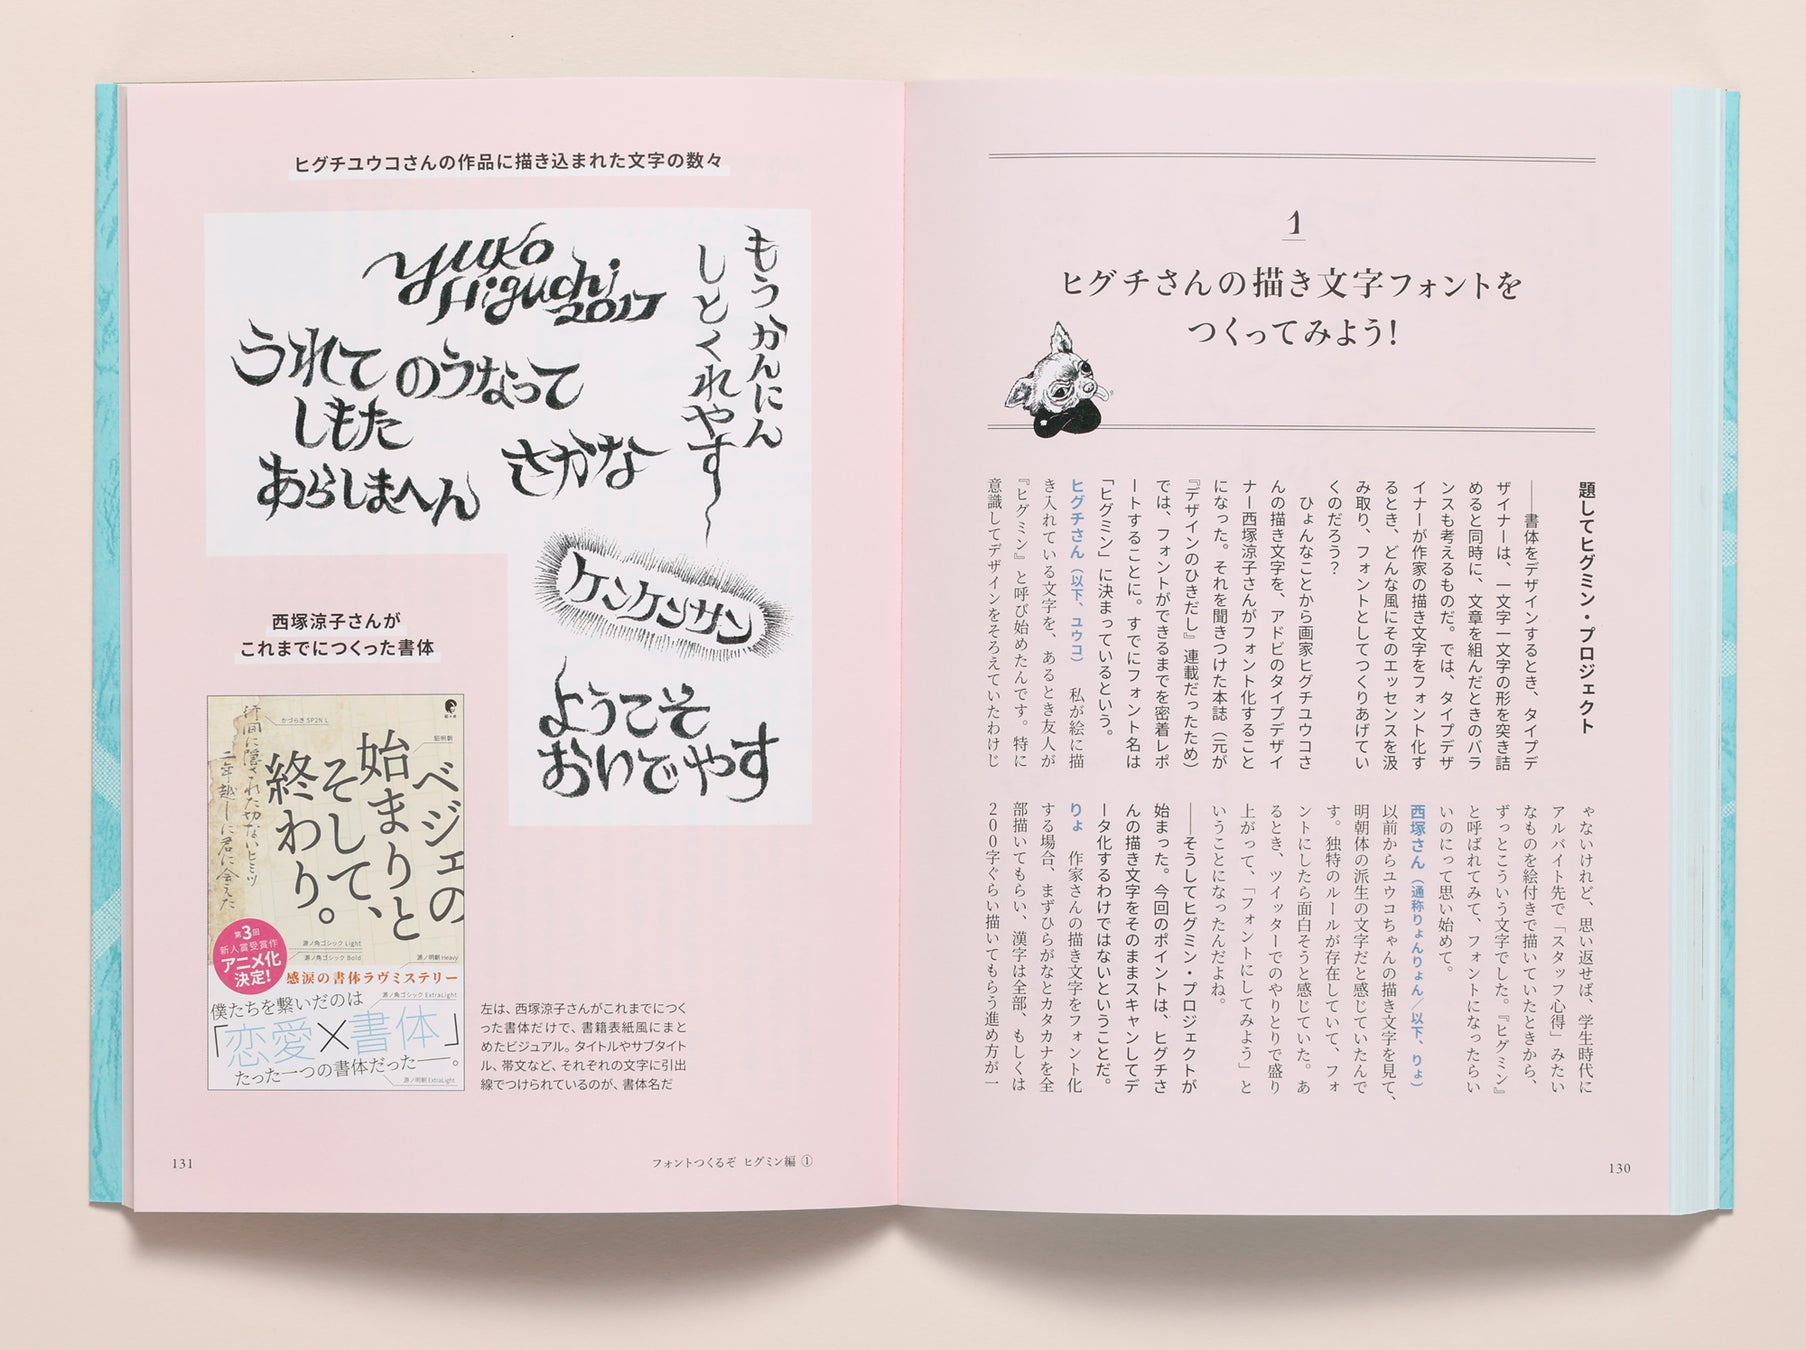 1
ヒグチさんの描き文字フォントを
つくってみよう！
題してヒグミン・プロジェクト
――書体をデザインするとき、タイプデ
ザイナーは、一文字一文字の形を突き詰
めると同時に、文章を組んだときのバラ
ンスも考えるものだ。では、タイプデザ
イナーが作家の描き文字をフォント化す
るとき、どんな風にそのエッセンスを汲
み取り、フォントとしてつくりあげてい
くのだろう？
ひょんなことから画家ヒグチユウコさ
んの描き文字を、アドビのタイプデザイ
ナー西塚涼子さんがフォント化すること
になった。それを聞きつけた本誌（元が
『デザインのひきだし』連載だったため）
では、フォントができるまでを密着レポ
ートすることに。すでにフォント名は
「ヒグミン」に決まっているという。
ヒグチさん（以下、ユウコ）　私が絵に描
き入れている文字を、あるとき友人が
『ヒグミン』と呼び始めたんです。特に
意識してデザインをそろえていたわけじ
ゃないけれど、思い返せば、学生時代に
アルバイト先で「スタッフ心得」みたい
なものを絵付きで描いていたときから、
ずっとこういう文字でした。『ヒグミン』
と呼ばれてみて、フォントになったらい
いのにって思い始めて。
西塚さん（通称りょんりょん／以下、りょ）
以前からユウコちゃんの描き文字を見て、
明朝体の派生の文字だと感じていたんで
す。独特のルールが存在していて、フォ
ントにしたら面白そうと感じていた。あ
るとき、ツイッターでのやりとりで盛り
上がって、「フォントにしてみよう」と
いうことになったんだよね。
――そうしてヒグミン・プロジェクトが
始まった。今回のポイントは、ヒグチさ
んの描き文字をそのままスキャンしてデ
ータ化するわけではないということだ。
りょ　作家さんの描き文字をフォント化
する場合、まずひらがなとカタカナを全
部描いてもらい、漢字は全部、もしくは
200字ぐらい描いてもらう進め方が一
130
ヒグチユウコさんの作品に描き込まれた文字の数々
もうかんにん
しとくれやす〜
yuko
Higuchi
2017
うれて
しもた
のうなって
あらしまへん
さかな
ケンケンサン
ようこそ
おいでやす
西塚涼子さんが
これまでにつくった書体
かづらき SP2N L
貂明朝
ベジェの
始まりと
そして、
終わり。
行間に隠された切ないヒミツ
二年越しに君に会えた
第3回
新人賞受賞作
アニメ化
決定！
源ノ角ゴシック Light
源ノ角ゴシック Bold
源ノ明朝 Heavy
感涙の書体ラヴミステリー
源ノ角ゴシック ExtraLight
僕たちを繋いだのは
「恋愛×書体」
たった一つの書体だった――。
源ノ明朝 ExtraLight
左は、西塚涼子さんがこれまでにつく
った書体だけで、書籍表紙風にまと
めたビジュアル。タイトルやサブタイト
ル、帯文など、それぞれの文字に引出
線でつけられているのが、書体名だ
131
フォントつくるぞ ヒグミン編 ①